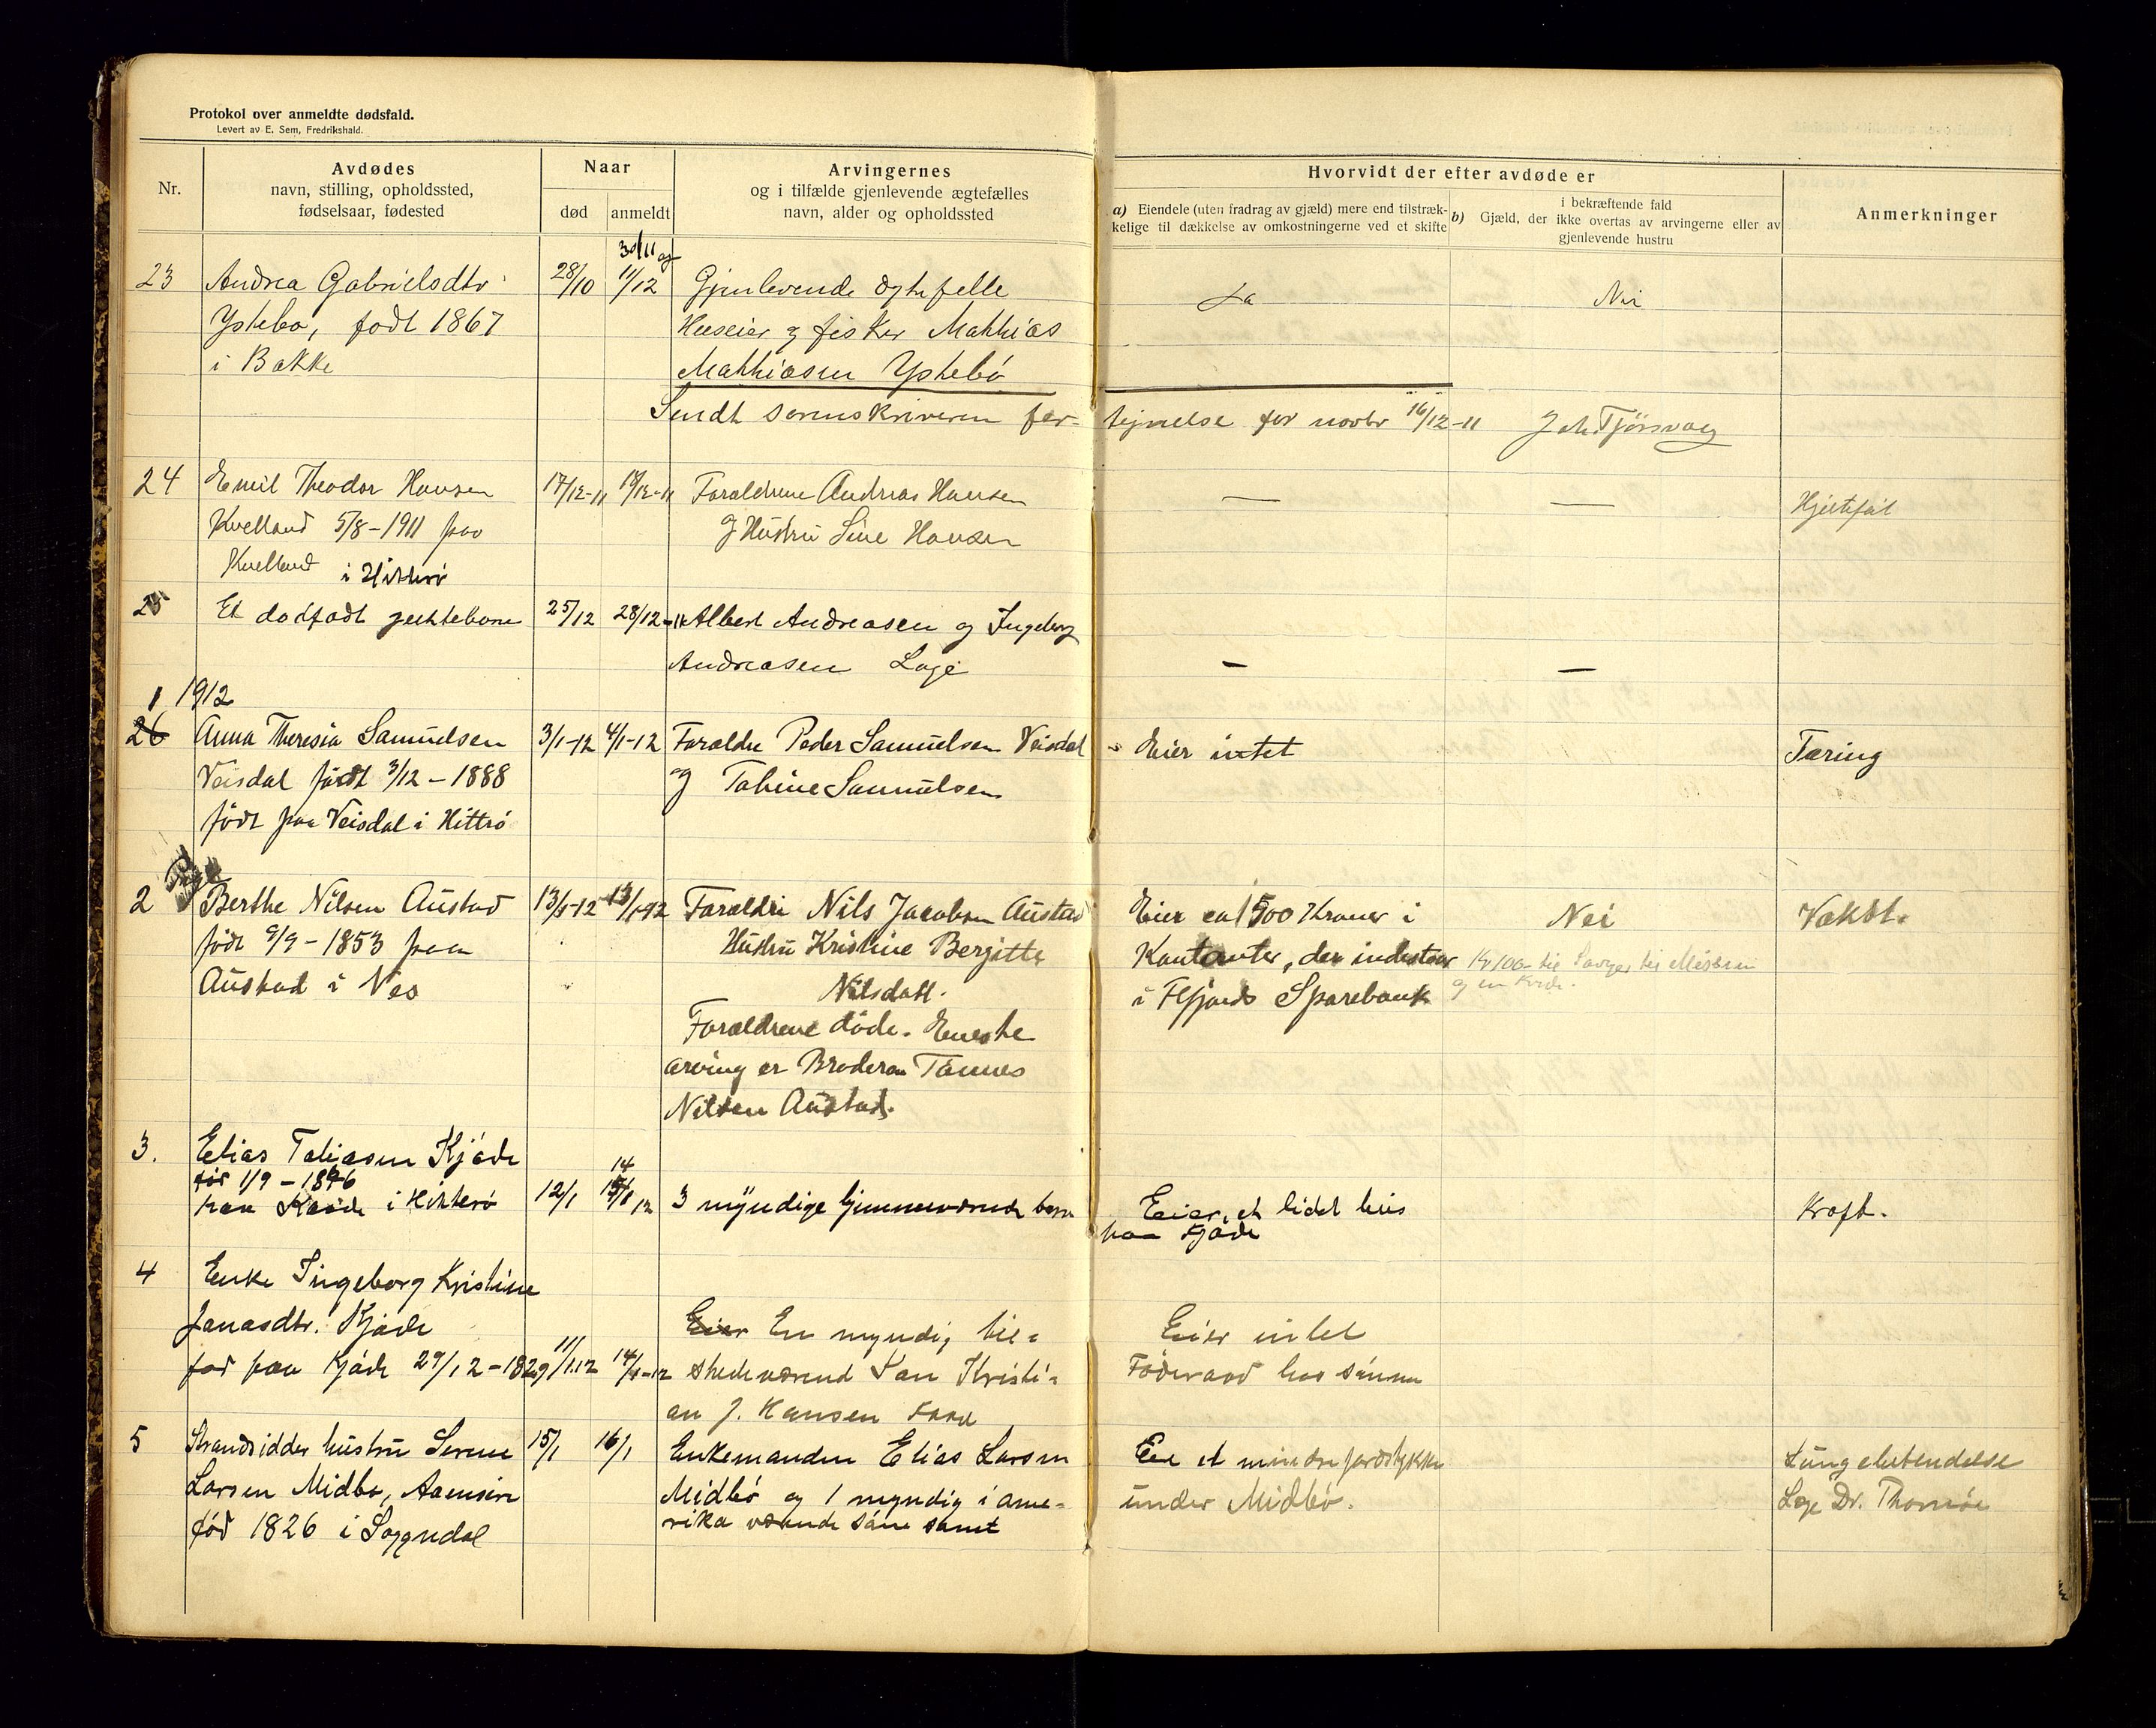 Protokol over anmeldte dødsfald.
Levert av E. Sem, Fredrikshald.
Nr.
Avdødes
navn, stilling, opholdssted,
fødselsaar, fødested
Naar
død
anmeldt
Arvingernes
og i tilfælde gjenlevende ægtefælles
navn, alder og opholdssted
Hvorvidt der efter avdøde er
a) Eiendele (uten fradrag av gjæld) mere end tilstræk-
kelige til dækkelse av omkostningerne ved et skifte
b) i bekræftende fald
Gjæld, der ikke overtas av arvingerne eller av
gjenlevende hustru
Anmerkninger
23 Andrea Gabrielsdtr
Ystebø, født 1867
i Bakke
28/10
30/11 og
11/12
Gjenlevende ægtefelle
Huseier og fisker Mathias
Mathiasen Ystebø
Ja
Nei
Sendt sorenskriveren for- tejnelse for novbr 16/12-11 Joh. Tjørsvaag
24 Emil Theodor Hansen
Kvelland 5/8-1911 paa
Kvelland i Hitterø
17/12-11 19/12-11
Forældrene Andreas Hansen
og Hustru Sine Hansen
— —
Hjertefeil
25 Et dødfødt gutebarn
25/12 28/12-11
Albert Andreasen og Ingeborg
Andreasen Loge
— —
1 1912
26 Anna Theresia Samuelsen
Veisdal født 3/12-1888
født paa Veisdal i Hitterø
3/1-12 4/1-12
Forældre Peder Samuelsen Veisdal
og Tobine Samuelsen
Eier intet
Tæring
Pige
2 Berthe Nilsen Austad
født 9/9-1853 paa
Austad i Nes
13/1-12 13/1-12
Forældre Nils Jacobsen Austad
Hustru Kristine Bergitte
Nilsdatt.
Forældrene døde. Eneste
arving er Broderen Tønnes
Nilsen Austad.
Eier ca 1500 Kroner i
Kontanter, der indestaar
i Flfjords Sparebank
Nei
Kr 100 til til Misjonen
og en
Vækst.
3. Elias Tobiasen Kjøde
før 1/9-1846
paa Kjøde i Hitterø
12/1
14
15/1 12
3 myndige hjemmeværende børn
Eier et lidet hus
paa Kjøde
Kræft.
4 Enke Ingeborg Kristine
Jonasdtr. Kjøde
fød paa Kjøde 29/12-1829
11/1.12 14/1-12
Eier En myndig til-
stedeværend Søn Kristi-
an J. Hansen
Eier intet
Føderaad hos sønnen
5 Strandsidder hustru Serine
Larsen Midbø,
fød 1826 i Soggndal
15/1 16/1
Enkemanden Elias Larsen
Midbø og 1 myndig i ame-
rika værende søn samt
Eier et mindre jordstykke
under Midbø.
Lungebetendelse
Lege Dr. Thomøe